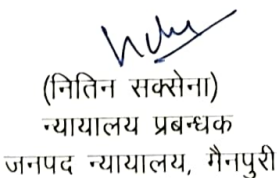 (नितिन सक्सेना)
न्यायालय प्रबन्धक
जनपद न्यायालय, मैनपुरी